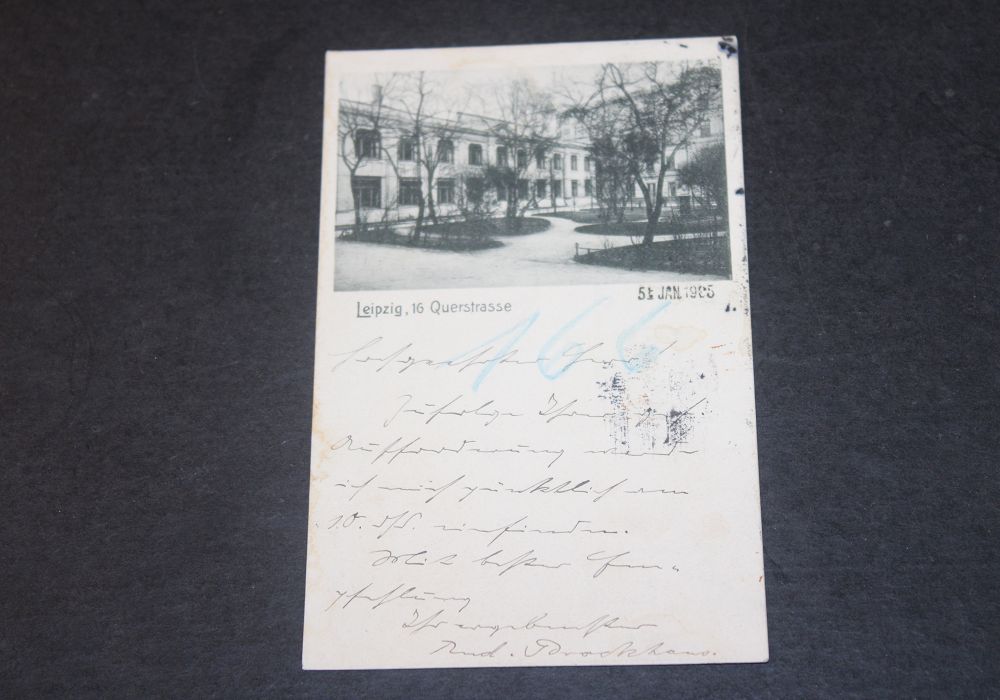 Leipzig, 16 Querstrasse
5 JAN. 1905
166
Hochgeehrter Herr!
Zufolge Ihrer
Aufforderung werde
ich mich pünktlich am
10. ds. einfinden.
Mit bester Em-
pfehlung
Ihr ergebenster
Rud. Brockhaus.